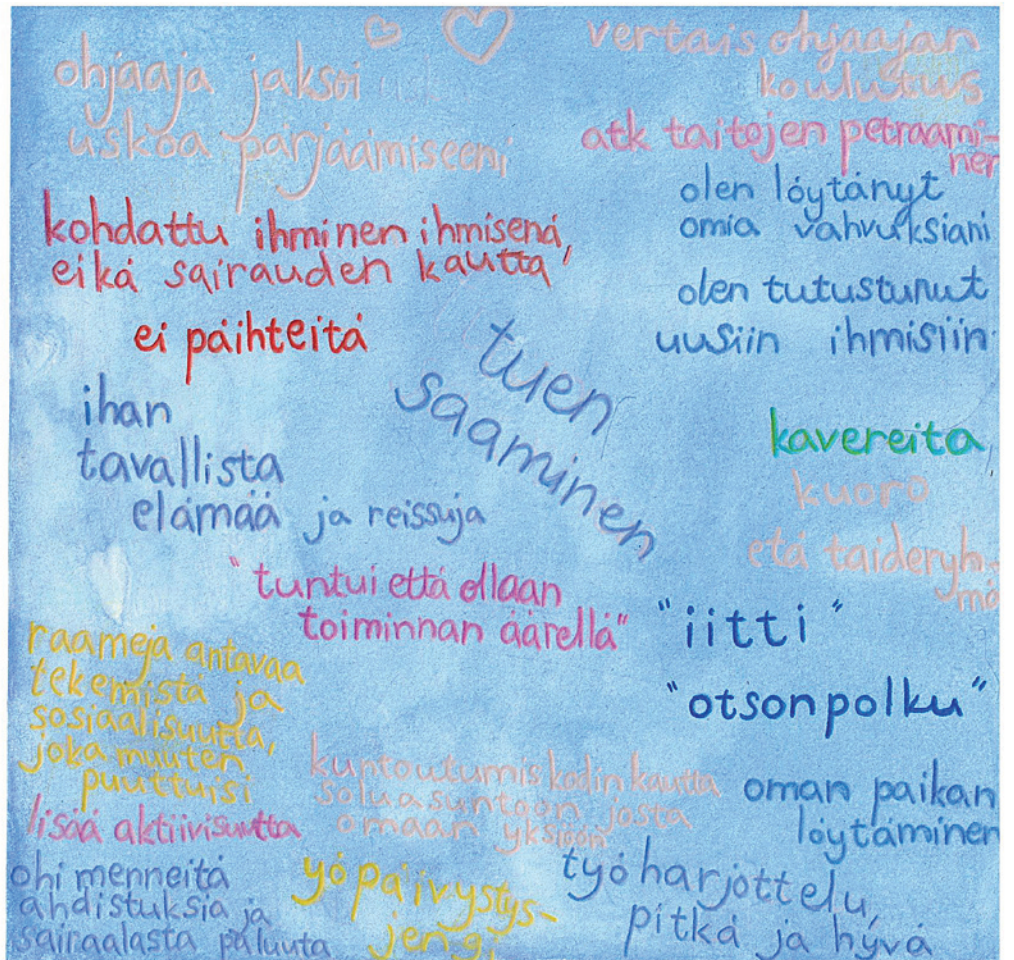 ohjaaja jaksoi
uskoa pärjäämiseeni
vertais ohjaajan
koulutus
atk taitojen petraami-
nen
olen löytänyt
omia vahvuksiani
kohdattu ihminen ihmisenä,
eikä sairauden kautta
olen tutustunut
uusiin ihmisiin
ei päihteitä
tuen
saaminen
ihan
tavallista
elämää ja reissuja
kavereita,
kuoro
etä taideryh-
mä
"tuntui että ollaan
toiminnan äärellä"
"iitti"
"otsonpolku"
raameja antavaa
tekemistä ja
sosiaalisuutta,
joka muuten
puuttuisi
kuntoutumiskodin kautta
soluasuntoon josta
omaan yksiöön
oman paikan
löytäminen
lisää aktiivisuutta
ohi menneitä
ahdistuksia ja
sairaalasta paluuta
yöpäivystys-
jengi
työharjottelu,
pitkä ja hyvä